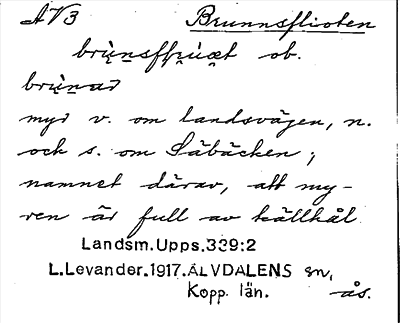 ÄV3 Brunnsflioten
ob.
myr v. om landsvägen, n.
och s. om Säbäcken;
namnet därav, att my-
ren är full av källhål
Landsm.Upps.339:2
L.Levander.1917.ÄLVDALENS sn,
Kopp. län. ås.